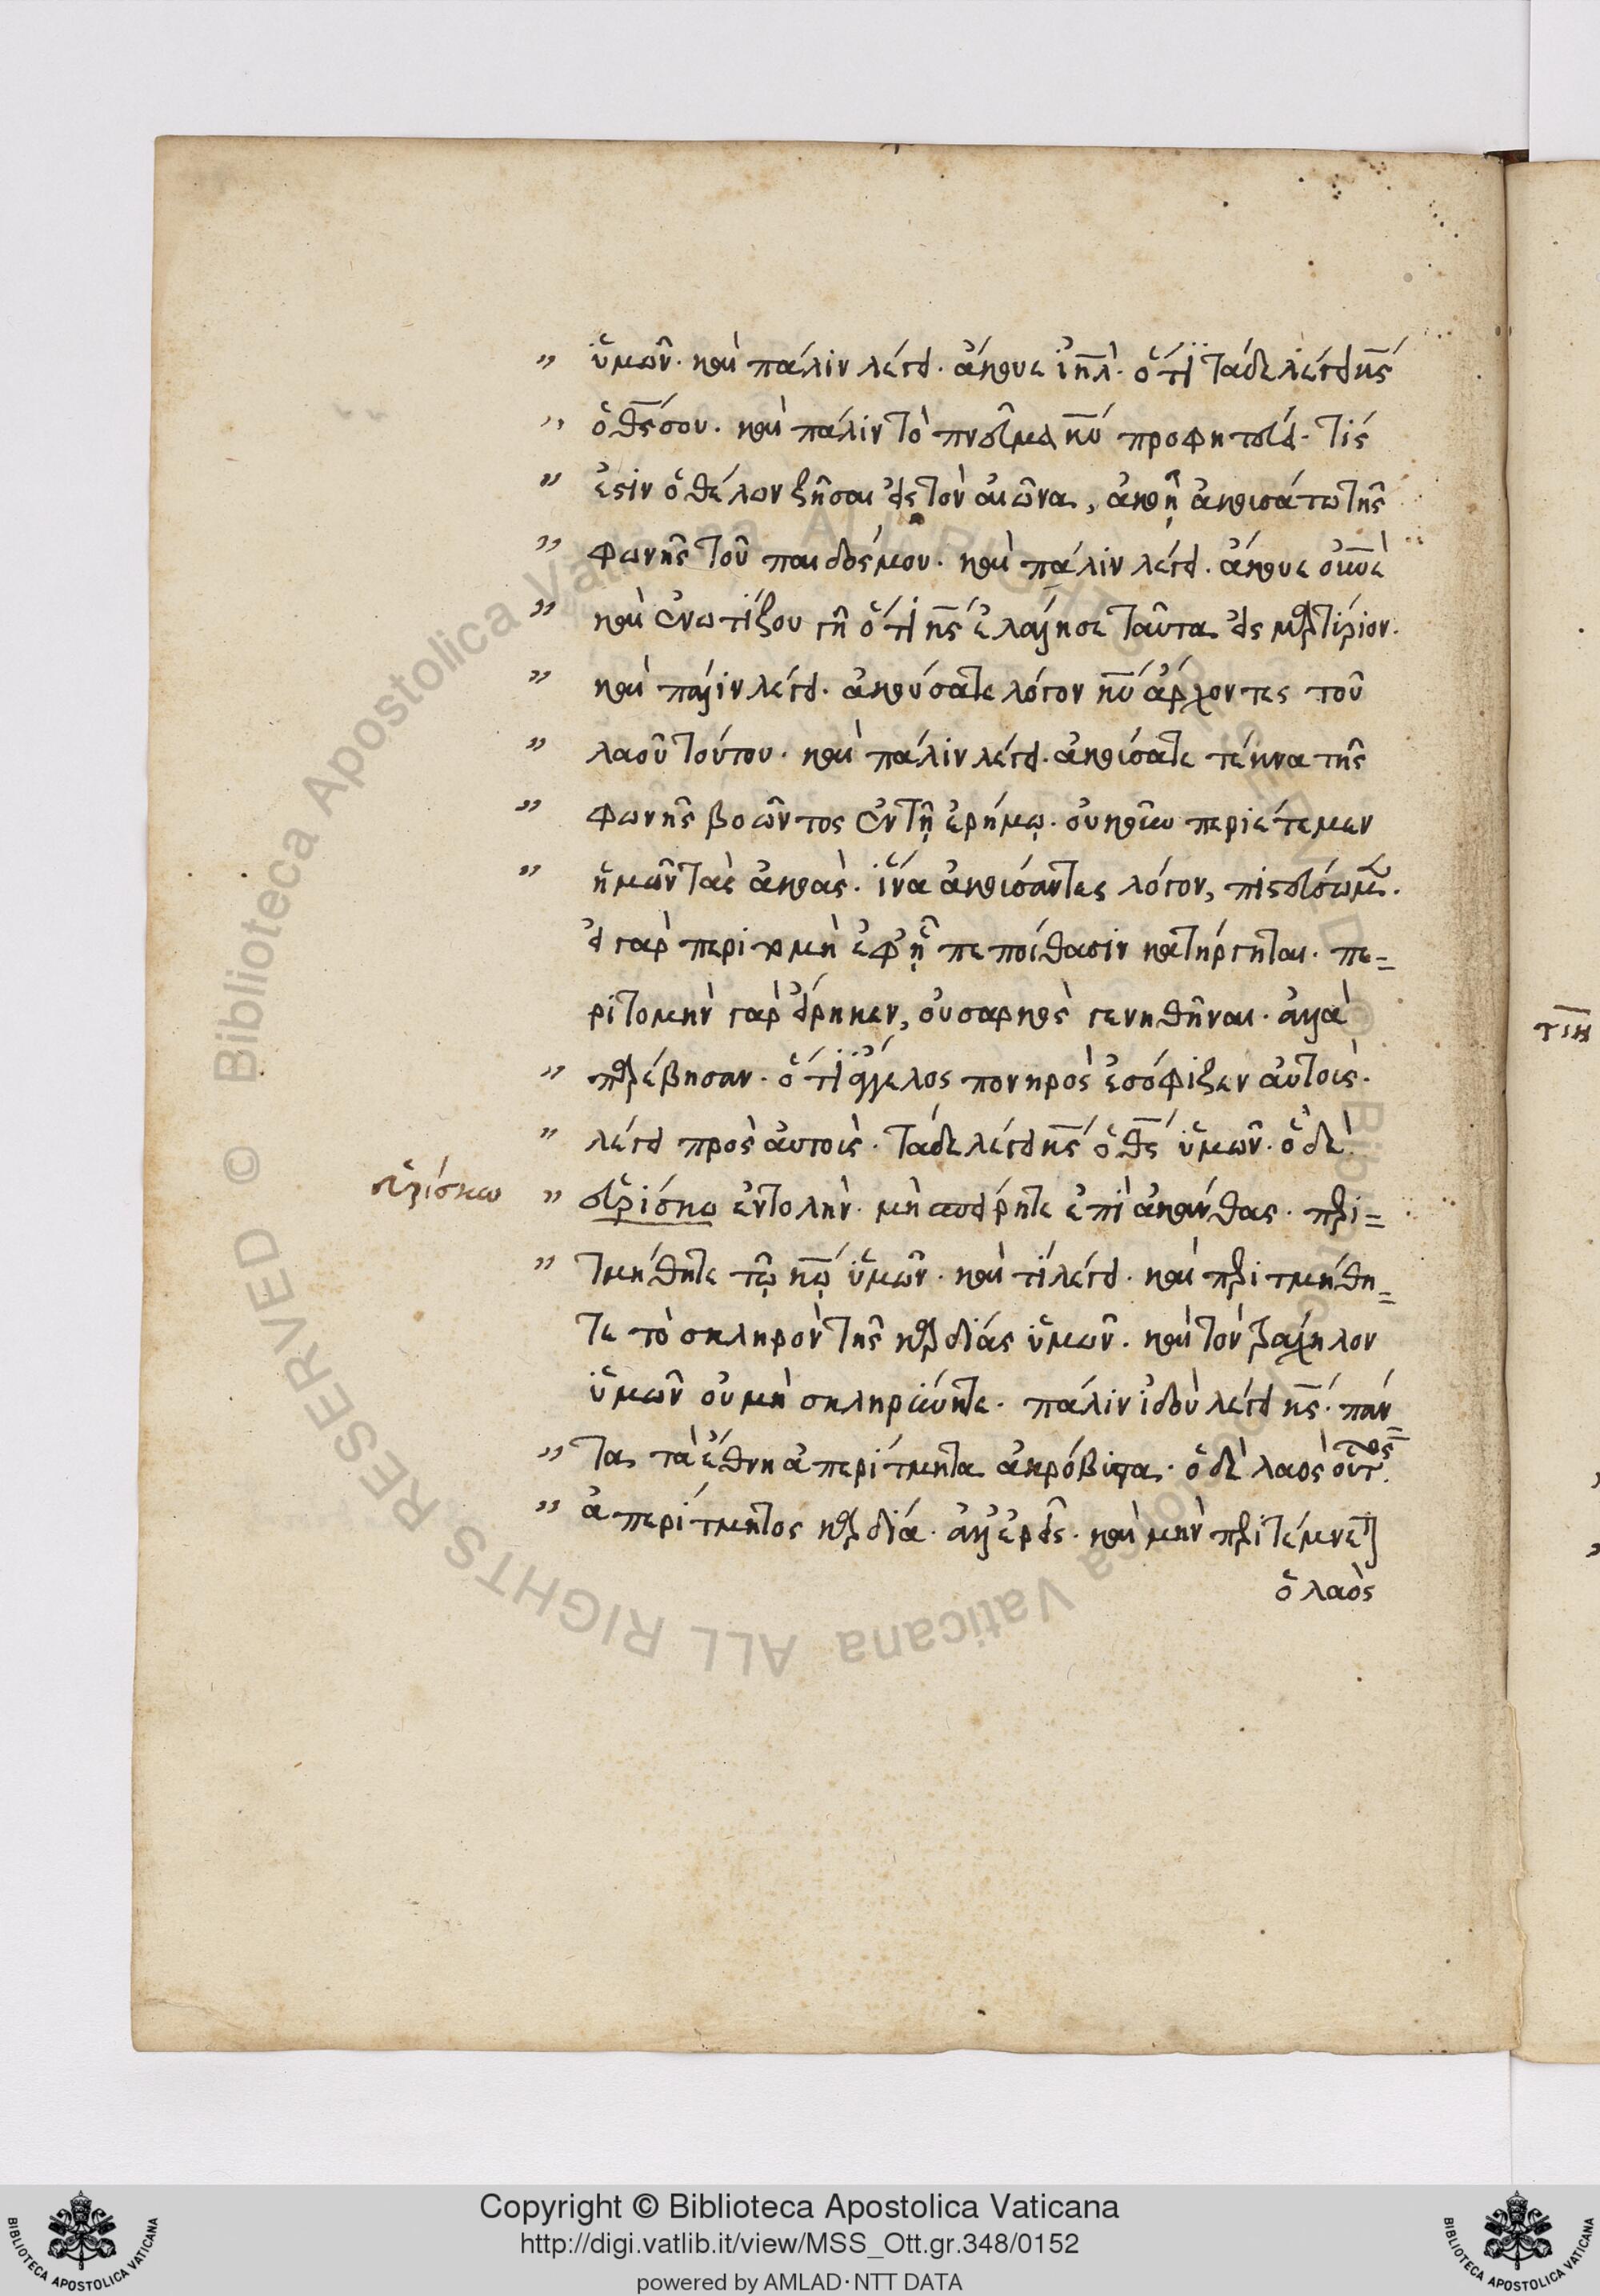 ὑμῶν· καὶ πάλιν λέγει· ἄκουε ἰη̅λ̅· ὅτι τάδε λέγει κ̅ς̅
ὁ θ̅ς̅ σου. καὶ πάλιν τὸ πνεῦμα κ̅υ̅ προφητεύει· τίς
ἐστιν ὁ θέλων ζῆσαι εἰς τὸν αἰῶνα, ἀκοῇ ἀκουσάτω τῆς
φωνῆς τοῦ παιδός μου. καὶ πάλιν λέγει. ἄκουε οὐ̅ν̅ὲ
καὶ ἐνωτίζου γῆ ὅτι κ̅ς̅ ἐλάλησε ταῦτα εἰς μαρτύριον.
καὶ πάλιν λέγει. ἀκούσατε λόγον κ̅υ̅ ἄρχοντες τοῦ
λαοῦ τούτου. καὶ πάλιν λέγει. ἀκούσατε τέκνα τῆς
φωνῆς βοῶντος ἐν τῇ ἐρήμῳ. οὐκοῦν περιέτεμεν
ἡμῶν τὰς ἀκοὰς. ἵνα ἀκούσαντες λόγον, πιστεύσωμεν.
εἰ γὰρ περιτομὴ ἐφ' ᾗ πεποίθασιν κατήργηται. πε=
ριτομὴν γὰρ εἴρηκεν, οὐ σαρκὸς γενηθῆναι. ἀλλὰ
παρέβησαν. ὅτι ἄγγελος πονηρὸς ἐσόφιζεν αὐτοὺς.
λέγει πρὸς αὐτοὺς. τάδε λέγει κ̅ς̅ ὁ θ̅ς̅ ὑμῶν. ὁ δὲ
εὑρίσκω
εὑρίσκω ἐντολὴν. μὴ σπείρητε ἐπὶ ἀκάνθας. περι=
τμήθητε τῷ κ̅ῳ̅ ὑμῶν. καὶ τί λέγει. καὶ περιτμήθη=
τε τὸ σκληρὸν τῆς καρδίας ὑμῶν. καὶ τὸν τράχηλον
ὑμῶν οὐ μὴ σκληρύνητε. πάλιν ἰδοὺ λέγει κ̅ς̅. πάν=
τα τὰ ἔθνη ἀπερίτμητα ἀκρόβυστα. ὁ δὲ λαὸς οὗτος
ἀπερίτμητος καρδία. ἀλλ' ἐρεῖς. καὶ μὴν περιτέμνεται
ὁ λαὸς
τιη
Biblioteca Apostolica Vaticana ALL RIGHTS RESERVED ©
Copyright © Biblioteca Apostolica Vaticana
http://digi.vatlib.it/view/MSS_Ott.gr.348/0152
powered by AMLAD·NTT DATA
BIBLIOTECA APOSTOLICA VATICANA
BIBLIOTECA APOSTOLICA VATICANA